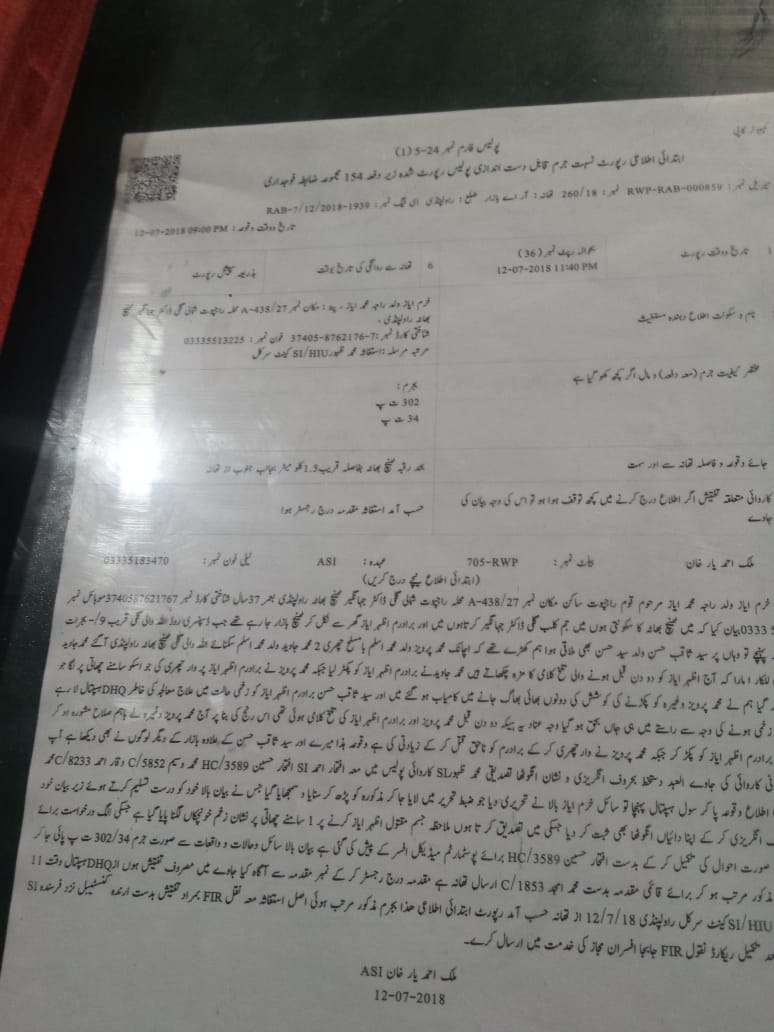 کمپیوٹر کاپی
پولیس فارم نمبر 24-5 (1)
ابتدائی اطلاعی رپورٹ نسبت جرم قابل دست اندازی پولیس رپورٹ شدہ زیر دفعہ 154 مجموعہ ضابطہ فوجداری
سیریل نمبر : RWP-RAB-000859 نمبر : 260/18 تھانہ : آر اے بازار ضلع : راولپنڈی ای ٹیگ نمبر : RAB-7/12/2018-1939
تاریخ ووقت وقوعہ : 12-07-2018 09:00 PM
1 تاریخ ووقت رپورٹ
بحوالہ رپٹ نمبر (36)
12-07-2018 11:40 PM
6 تھانہ سے روانگی کی تاریخ ووقت
بذریعہ سپیشل رپورٹ
نام و سکونت اطلاع دہندہ مستغیث
خرم ایاز ولد راجہ محمد ایاز ، پتہ : مکان نمبر A-438/27 محلہ راجپوت شمالی گلی ڈاکٹر جہانگیر ٹینچ
بھاٹہ راولپنڈی ،
شناختی کارڈ نمبر : 37405-8762176-7 فون نمبر : 03335513225
مرتبہ مرسلہ : استغاثہ محمد ظہور SI/HIU کینٹ سرکل
مختصر کیفیت جرم (معہ دفعہ) و مال اگر کچھ کھو گیا ہے
بجرم :
302 ت پ
34 ت پ
جائے وقوعہ و فاصلہ تھانہ سے اور سمت
بحد رقبہ ٹینچ بھاٹہ بفاصلہ قریب 1.5 کلو میٹر بجانب جنوب از تھانہ
کاروائی متعلقہ تفتیش اگر اطلاع درج کرنے میں کچھ توقف ہوا ہو تو اس کی وجہ بیان کی
جاوے
حسب آمد استغاثہ مقدمہ درج رجسٹر ہوا
ملک احمد یار خان بیلٹ نمبر : 705-RWP عہدہ : ASI ٹیلی فون نمبر : 03335183470
(ابتدائی اطلاع نیچے درج کریں)
خرم ایاز ولد راجہ محمد ایاز مرحوم قوم راجپوت ساکن مکان نمبر A-438/27 محلہ راجپوت شمالی گلی ڈاکٹر جہانگیر ٹینچ بھاٹہ راولپنڈی بعمر 37 سال شناختی کارڈ نمبر 3740587621767 موبائل نمبر
0333 5 بیان کیا کہ میں ٹینچ بھاٹہ کا سکونتی ہوں میں جم کلب گلی ڈاکٹر جہانگیر کرتا ہوں میں اور برادرم اظہر ایاز گھر سے نکل کر ٹینچ بازار جا رہے تھے جب ڈسپنسری روڈ اللہ والی گلی قریب 9/- بجے رات
پہنچے تو وہاں پر سید ثاقب حسن ولد سید حسن بھی ملاقی ہوا ہم کھڑے تھے کہ اچانک محمد پرویز ولد محمد اسلم بامسلح چھری 2 محمد جاوید ولد محمد اسلم سکنائے اللہ والی گلی ٹینچ بھاٹہ راولپنڈی آگئے محمد جاوید
للکارا مارا کہ آج اظہر ایاز کو دو دن قبل ہونے والی تلخ کلامی کا مزہ چکھاتے ہیں محمد جاوید نے برادرم اظہر ایاز کو پکڑ لیا جبکہ محمد پرویز نے برادرم اظہر ایاز پر وار چھری کی جو اسکو سامنے چھاتی پر لگا جو
گیا ہم نے محمد پرویز وغیرہ کو پکڑنے کی کوشش کی دونوں بھائی بھاگ جانے میں کامیاب ہو گئے میں اور سید ثاقب حسن برادرم اظہر ایاز کو زخمی حالت میں علاج معالجہ کی خاطر DHQ ہسپتال لا رہے
زخمی ہونے کی وجہ سے راستے میں ہی جاں بحق ہو گیا وجہ عناد یہ ہیکہ دو دن قبل محمد پرویز اور برادرم اظہر ایاز کی تلخ کلامی ہوئی تھی اس رنج کی بنا پر آج محمد پرویز وغیرہ نے باہم صلاح مشورہ ہو کر
برادرم اظہر ایاز کو پکڑ کر جبکہ محمد پرویز نے وار چھری کر کے برادرم کو ناحق قتل کر کے زیادتی کی ہے وقوعہ ہذا میرے اور سید ثاقب حسن کے علاوہ بازار کے دیگر لوگوں نے بھی دیکھا ہے آپ
نی کاروائی کی جاوے العبد دستخط بحروف انگریزی و نشان انگوٹھا تصدیق محمد ظہور SI کاروائی پولیس میں معہ افتخار احمد SI افتخار حسین HC/3589 محمد وسیم C/5852 وقار احمد C/8233 محمد
اطلاع وقوعہ پا کر سول ہسپتال پہنچا تو سائل خرم ایاز بالا نے تحریری دیا جو ضبط تحریر میں لایا جا کر مذکورہ کو پڑھ کر سنایا و سمجھایا گیا جس نے بیان بالا خود کو درست تسلیم کرتے ہوئے زیر بیان خود
انگریزی کر کے اپنا دایاں انگوٹھا بھی ثبت کر دیا جسکی میں تصدیق کرتا ہوں ملاحظہ جسم مقتول اظہر ایاز کرنے پر 1 سامنے چھاتی پر نشان زخم خونچکاں لگنا پایا گیا ہے جسکی الگ درخواست برائے
صورت احوال کی تکمیل کر کے بدست افتخار حسین HC/3589 برائے پوسٹمارٹم میڈیکل افسر کے پیش کی گئی ہے بیان بالا سائل وحالات و واقعات سے صورت جرم 302/34 ت پ پائی جا کر
مذکور مرتب ہو کر برائے قائمی مقدمہ بدست محمد امجد C/1853 ارسال تھانہ ہے مقدمہ درج رجسٹر کر کے نمبر مقدمہ سے آگاہ کیا جاوے میں مصروف تفتیش ہوں از DHQ ہسپتال وقت 11
SI/HIU کینٹ سرکل راولپنڈی 12/7/18 از تھانہ حسب آمد رپورٹ ابتدائی اطلاعی ھذا بجرم مذکور مرتب ہوئی اصل استغاثہ معہ نقل FIR بمراد تفتیش بدست آرندہ کنسٹیبل نزد فرستندہ SI
بعد تکمیل ریکارڈ نقول FIR جابجا افسران مجاز کی خدمت میں ارسال کرے۔
ملک احمد یار خان ASI
12-07-2018